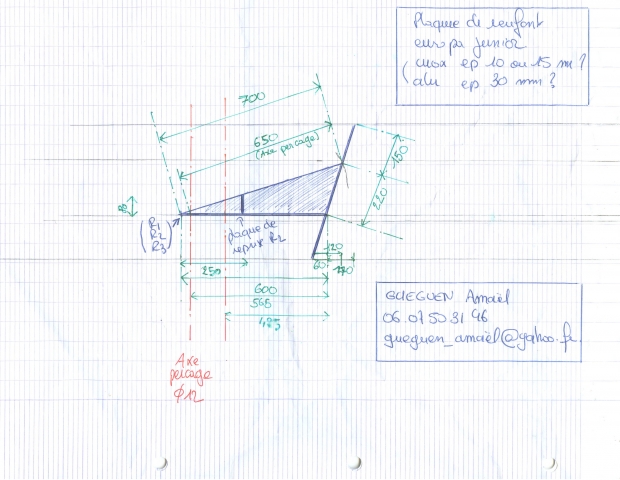 Plaque de renfort
europa junior
(inox ep 10 ou 15 m?
(alu ep 30 mm?
700
650
(Axe percage)
150
220
R1
R2
R3
plaque de
repère R2
120
60
250
600
565
485
Axe
percage
Φ12
GUEGUEN Amaël
06 07 50 31 46
gueguen_amaël@yahoo.fr